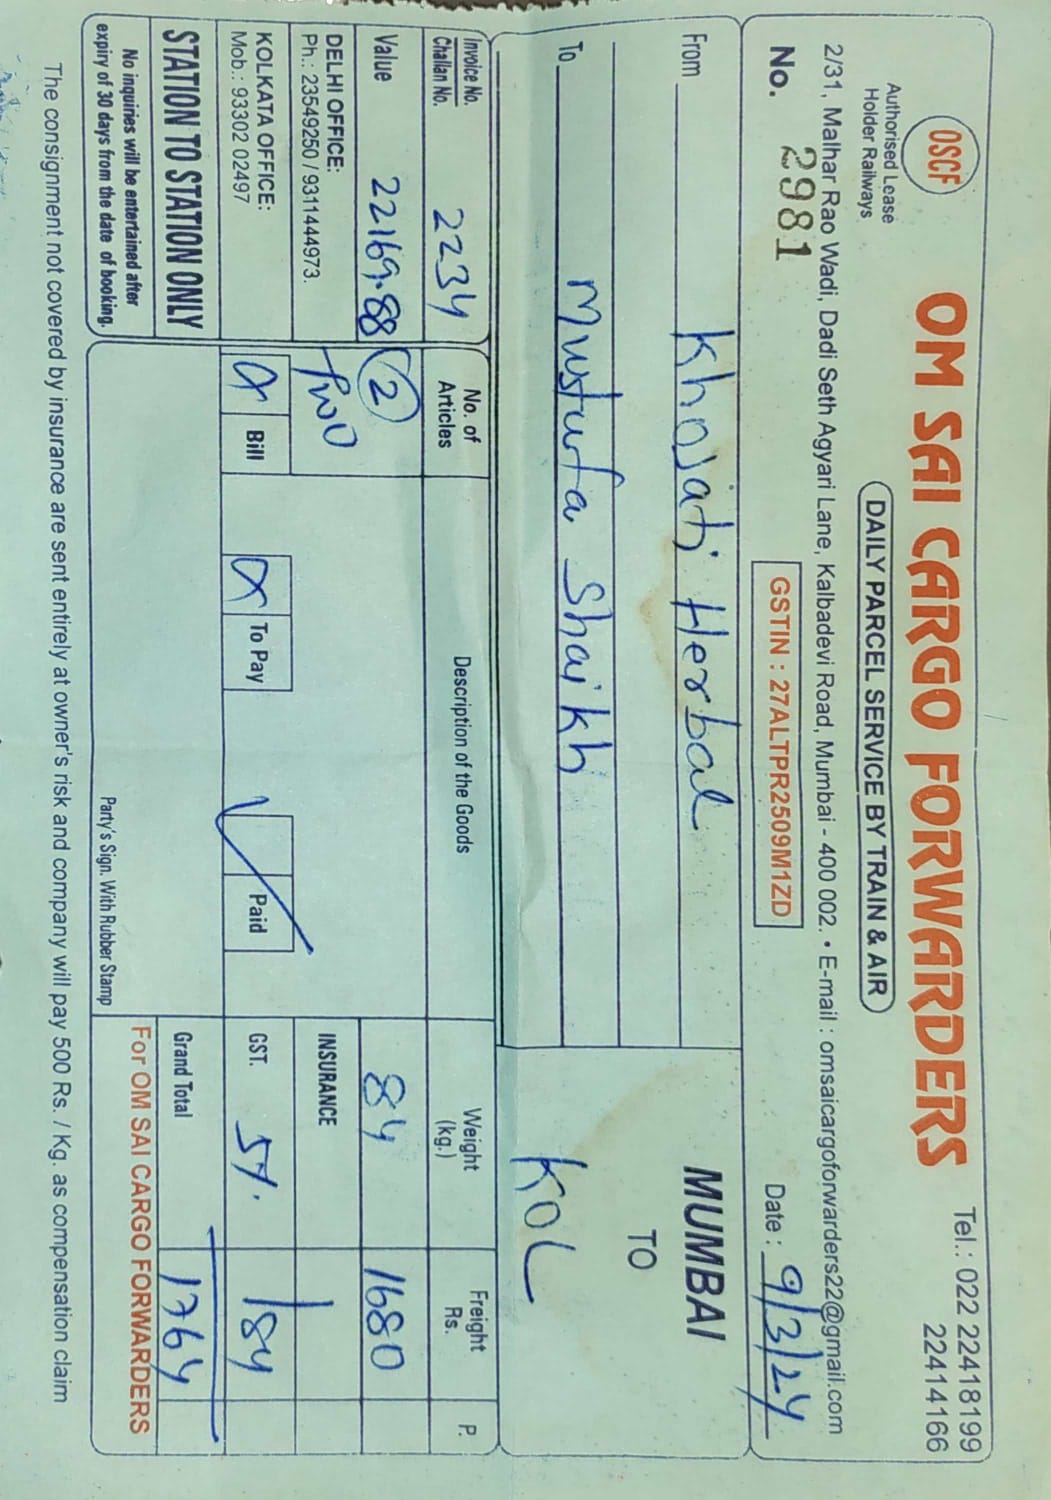 OSCF
Authorised Lease
Holder Railways
OM SAI CARGO FORWARDERS
Tel.: 022 22418199
22414166
DAILY PARCEL SERVICE BY TRAIN & AIR
2/31, Malhar Rao Wadi, Dadi Seth Agyari Lane, Kalbadevi Road, Mumbai - 400 002. • E-mail : omsaicargoforwarders22@gmail.com
No. 2981
GSTIN : 27ALTPR2509M1ZD
Date : 9/3/24
From Khojati Herbal
MUMBAI
TO
KOL
To Mustufa Shaikh
Invoice No.
Challan No.
2234
No. of
Articles
Description of the Goods
Weight
(kg.)
Freight
Rs.
P.
Value 22169.88
2
Two
84
1680
DELHI OFFICE:
Ph.: 23549250 / 9311444973.
INSURANCE
KOLKATA OFFICE:
Mob.: 93302 02497
Bill
To Pay
Paid
GST. 5%.
84
STATION TO STATION ONLY
Grand Total
1764
No inquiries will be entertained after
expiry of 30 days from the date of booking.
Party's Sign. With Rubber Stamp
For OM SAI CARGO FORWARDERS
The consignment not covered by insurance are sent entirely at owner's risk and company will pay 500 Rs. / Kg. as compensation claim